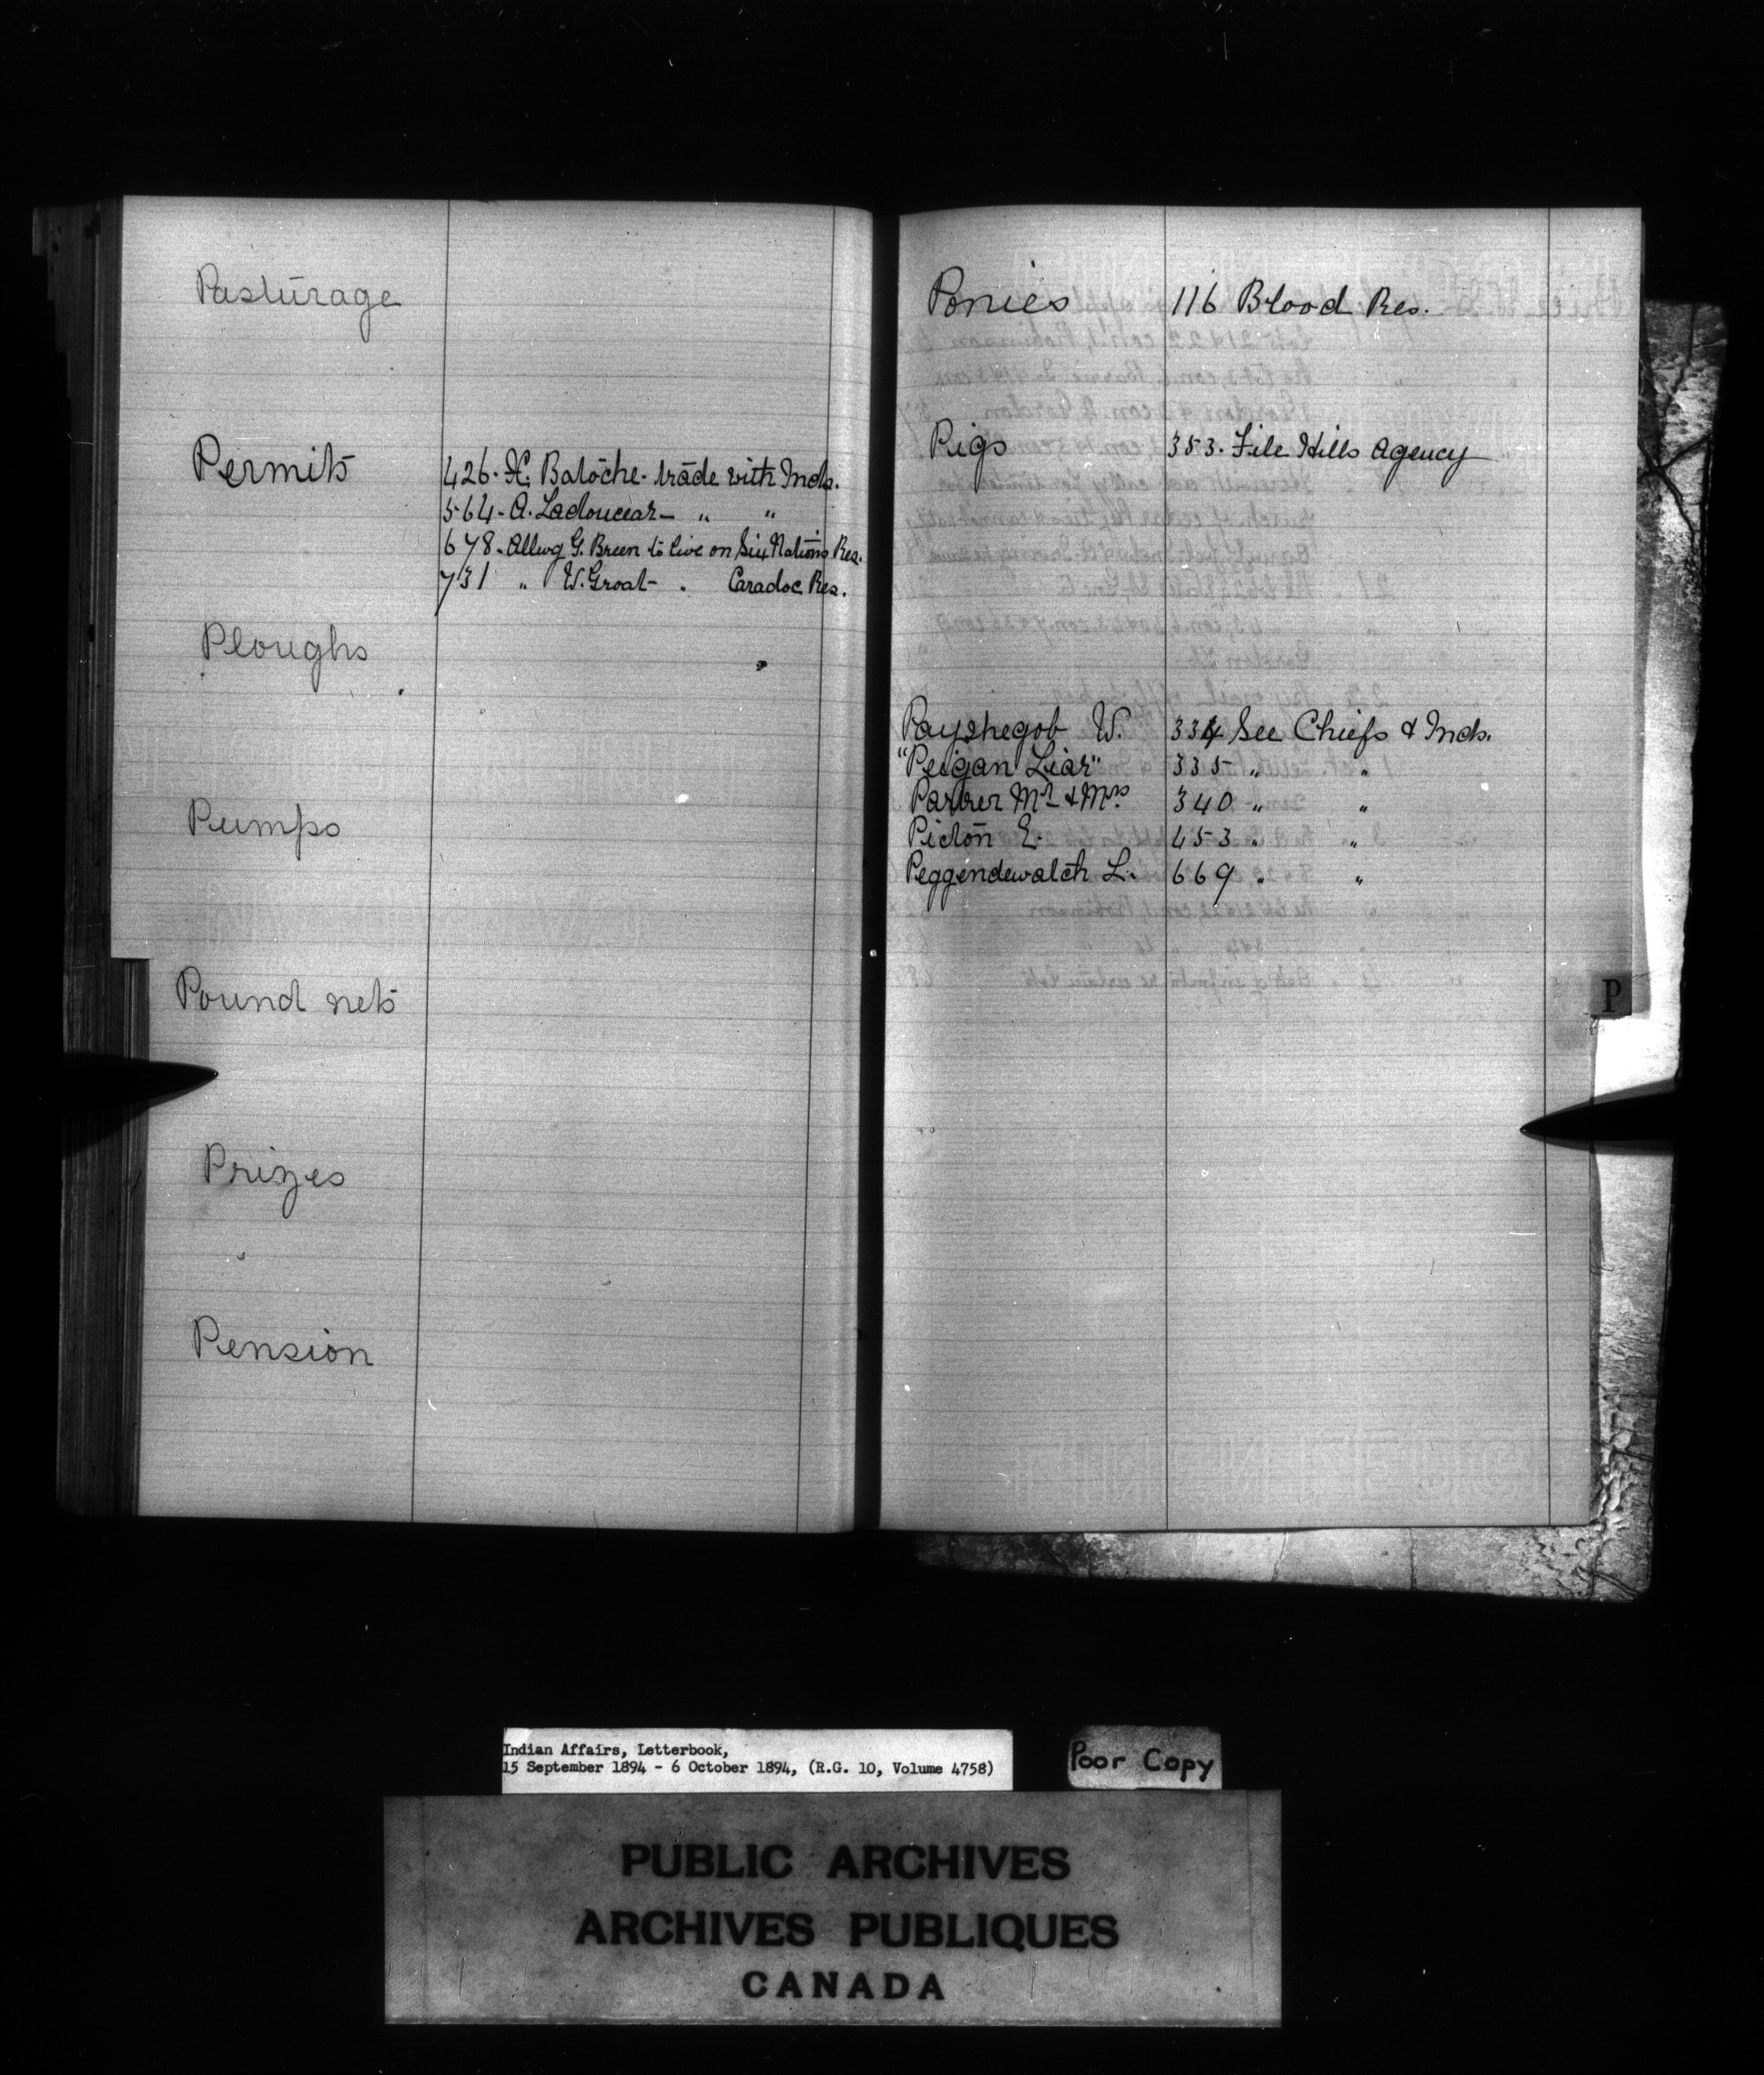 Pasturage
Permits
426. X. Batoche. trade with Inds.
564 - A. Ladoucear - " "
678 - Allwg G. Breen to live on Six Nations Res.
731 " W. Groat - . Caradoc Res.
Ploughs
Pumps
Pound nets
Prizes
Pension
Ponies 116 Blood Res.
Pigs 353. File Hills Agency
Payshegob W. 334 See Chiefs & Inds.
"Peigan Liar" 335 " "
Parker Mr & Mrs 340 " "
Picton E. 453 " "
Peggendewatch L. 669 " "
P
Indian Affairs, Letterbook,
15 September 1894 - 6 October 1894, (R.G. 10, Volume 4758)
Poor Copy
PUBLIC ARCHIVES
ARCHIVES PUBLIQUES
CANADA